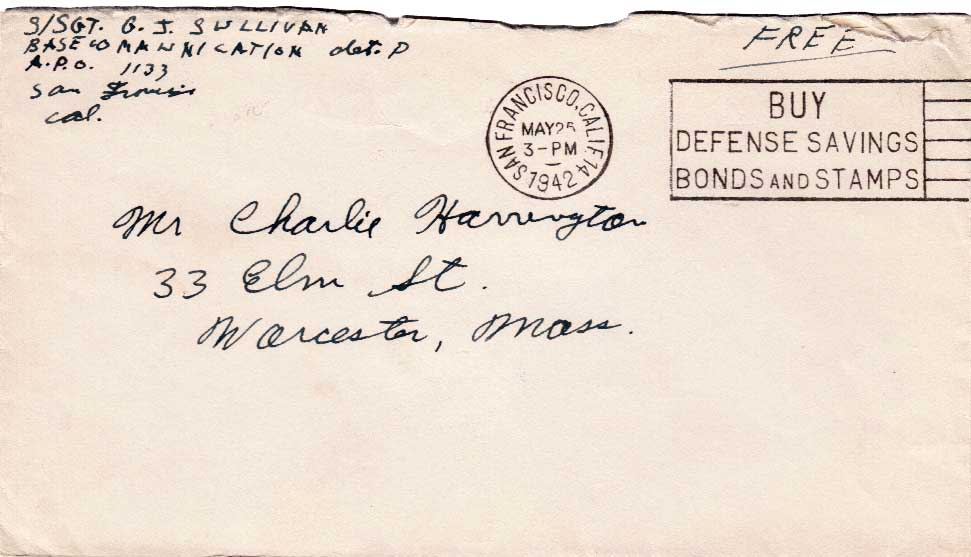 S/SGT. G. J. SULLIVAN
BASE COMAWNICATION det. D
A.P.O. 1133
San Francis
Cal.
FREE
SAN FRANCISCO, CALIF. 14
MAY 25
3-PM
1942
BUY
DEFENSE SAVINGS
BONDS AND STAMPS
Mr Charlie Harrington
33 Elm St.
Worcester, Mass.